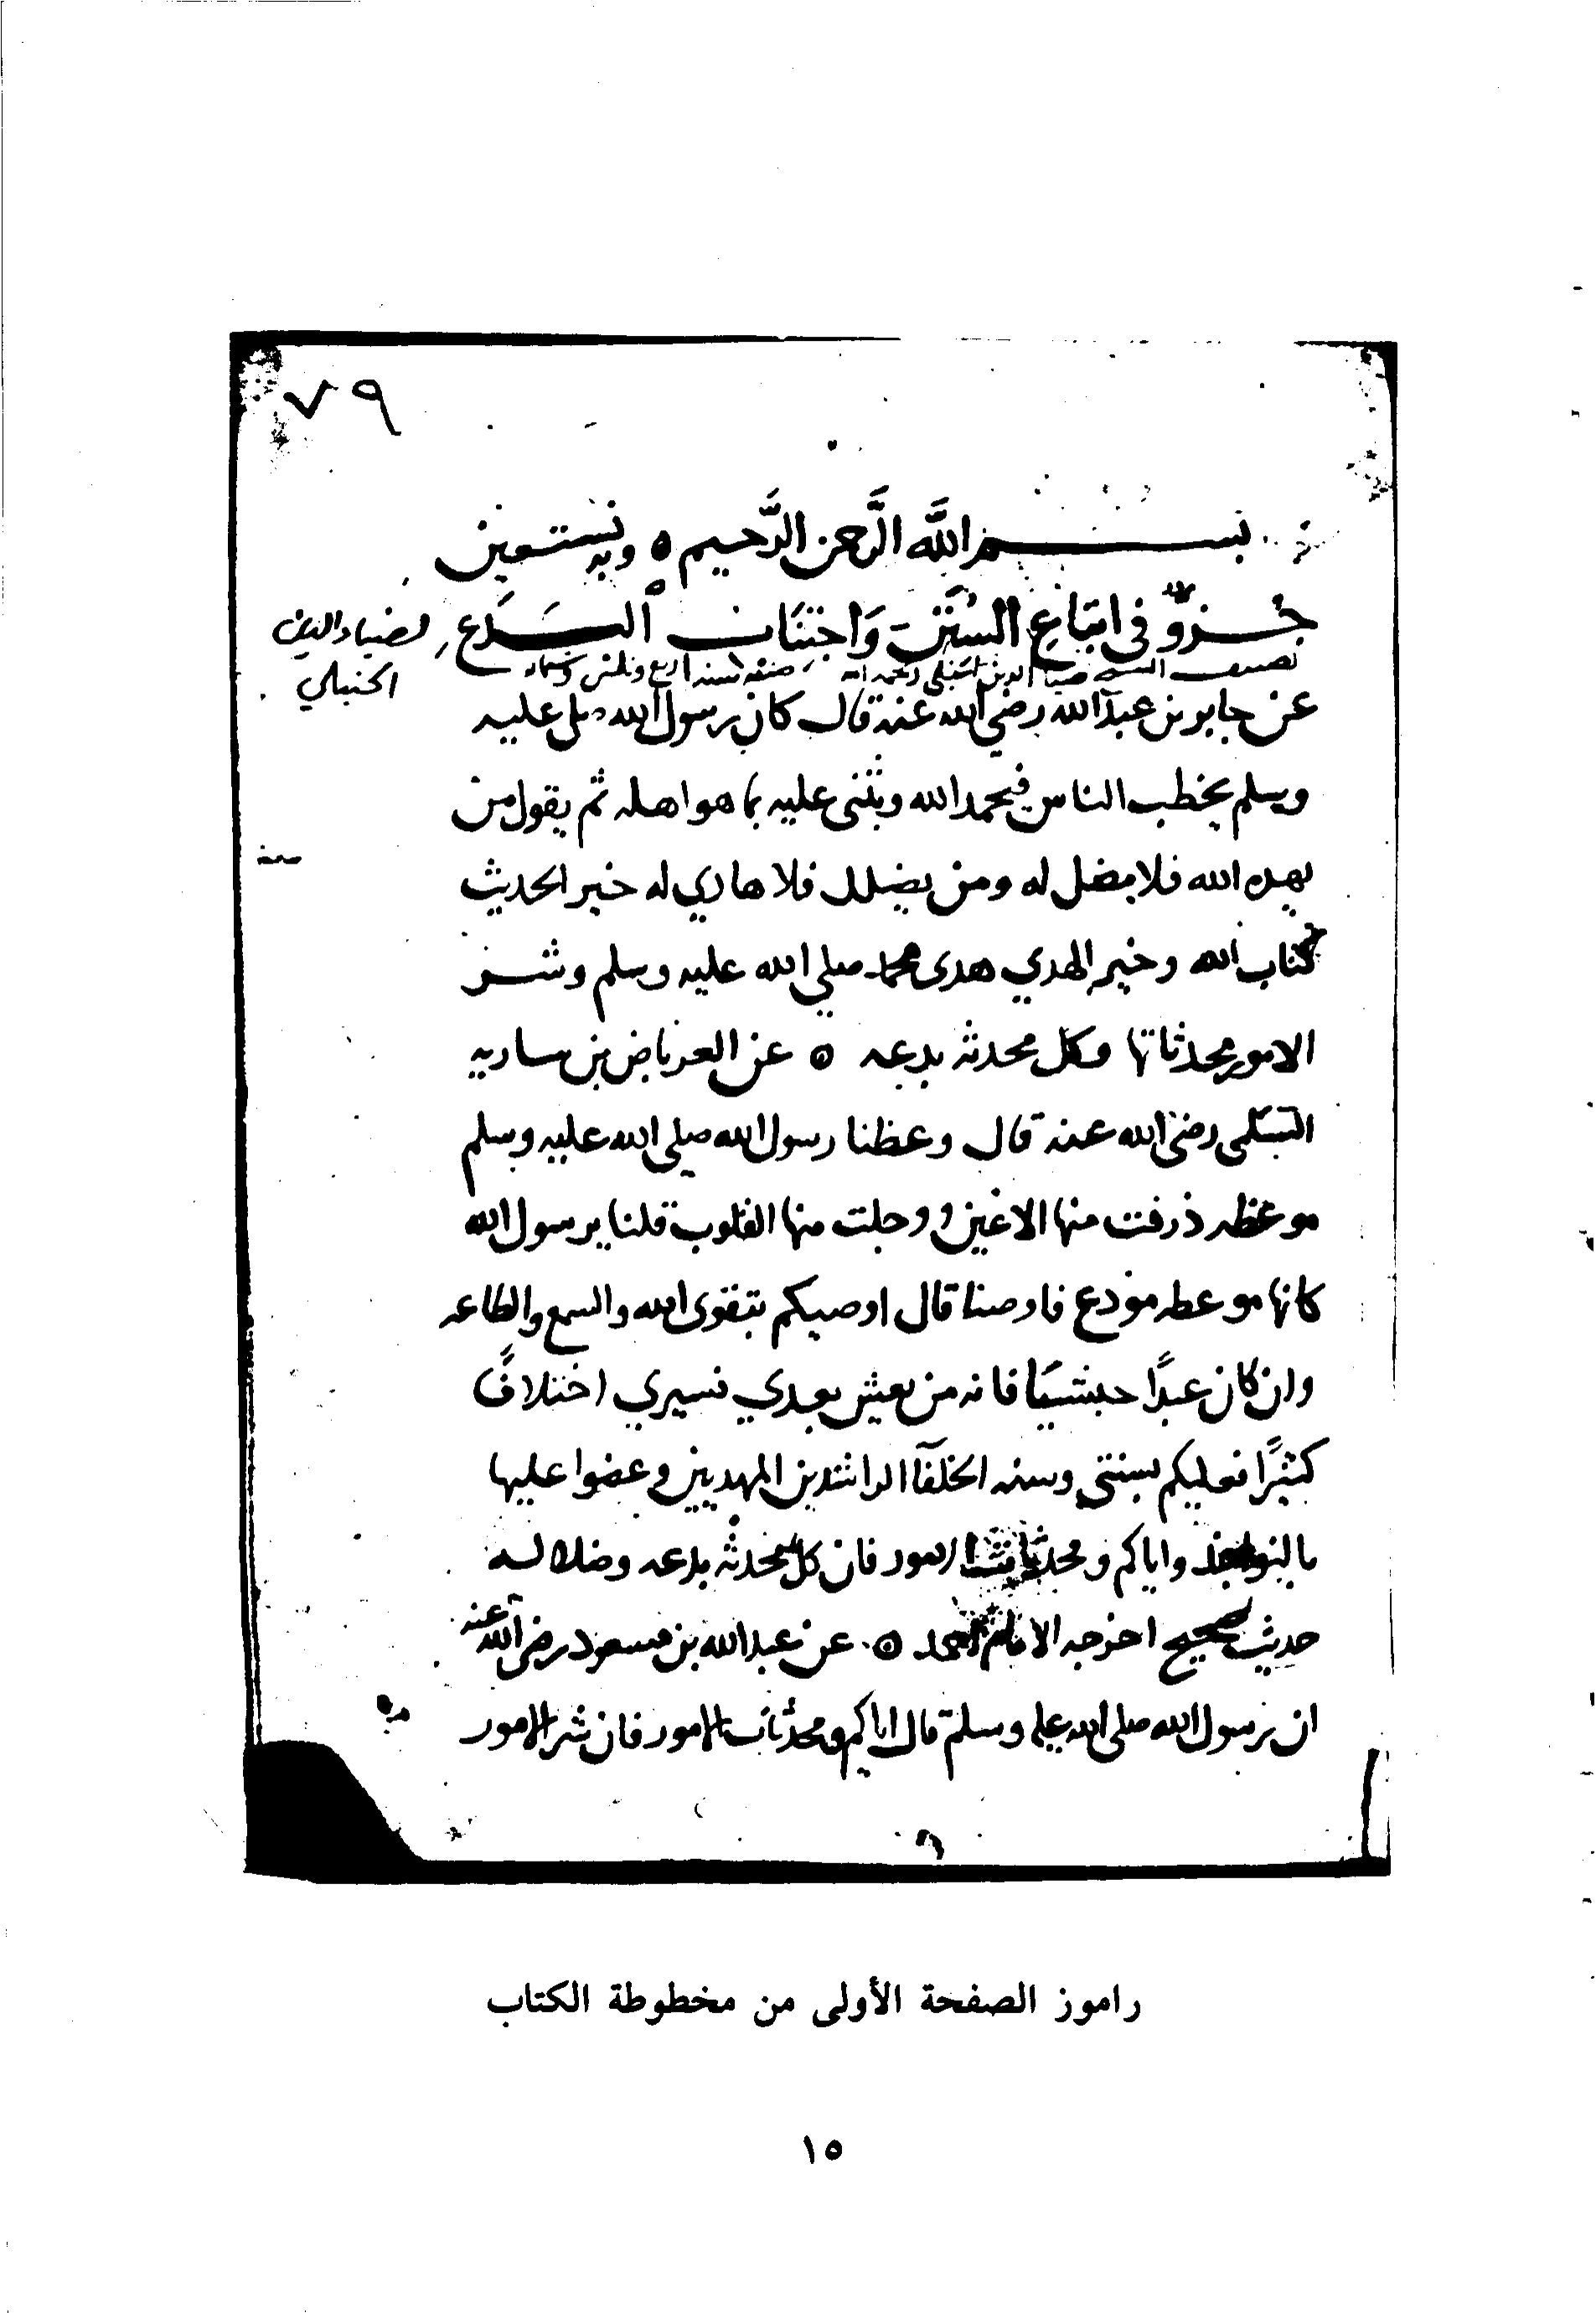 ٧٩
بسم الله الرحمن الرحيم ٥ وبه نستعين
جزؤ في اتباع السنن واجتناب البدع
لضياء الدين
الحنبلي
تصنيف الشيخ ضيا الدين الحنبلي رحمه الله صنفه سنه اربع وثلثين وستماه
عن جابر بن عبد الله رضي الله عنه قال كان رسول الله صلى عليه
وسلم يخطب الناس فيحمد الله ويثنى عليه بما هو اهله ثم يقول من
يهده الله فلا مضل له ومن يضلل فلا هادي له خير الحديث
كتاب الله وخير الهدي هدى محمد صلي الله عليه وسلم وشر
الامور محدثاتها وكل محدثه بدعه ٥ عن العرباض بن ساريه
السلمى رضي الله عنه قال وعظنا رسول الله صلى الله عليه وسلم
موعظه ذرفت منها الاعين ووجلت منها القلوب قلنا يرسول الله
كانها موعظه مودع فاوصنا قال اوصيكم بتقوى الله والسمع والطاعه
وان كان عبدًا حبشيا فانه من يعيش بعدي فسيري اختلافًا
كثيرًا فعليكم بسنتي وسنه الخلفا الراشدين المهديين وعضوا عليها
بالنواجذ واياكم ومحدثات الامور فان كل محدثه بدعه وضلاله
حديث صحيح اخرجه الامام احمد ٥ عن عبد الله بن مسعود رضي الله عنه
ان رسول الله صلى الله عليه وسلم قال اياكم ومحدثات الامور فان شر الامور
راموز الصفحة الأولى من مخطوطة الكتاب
١٥